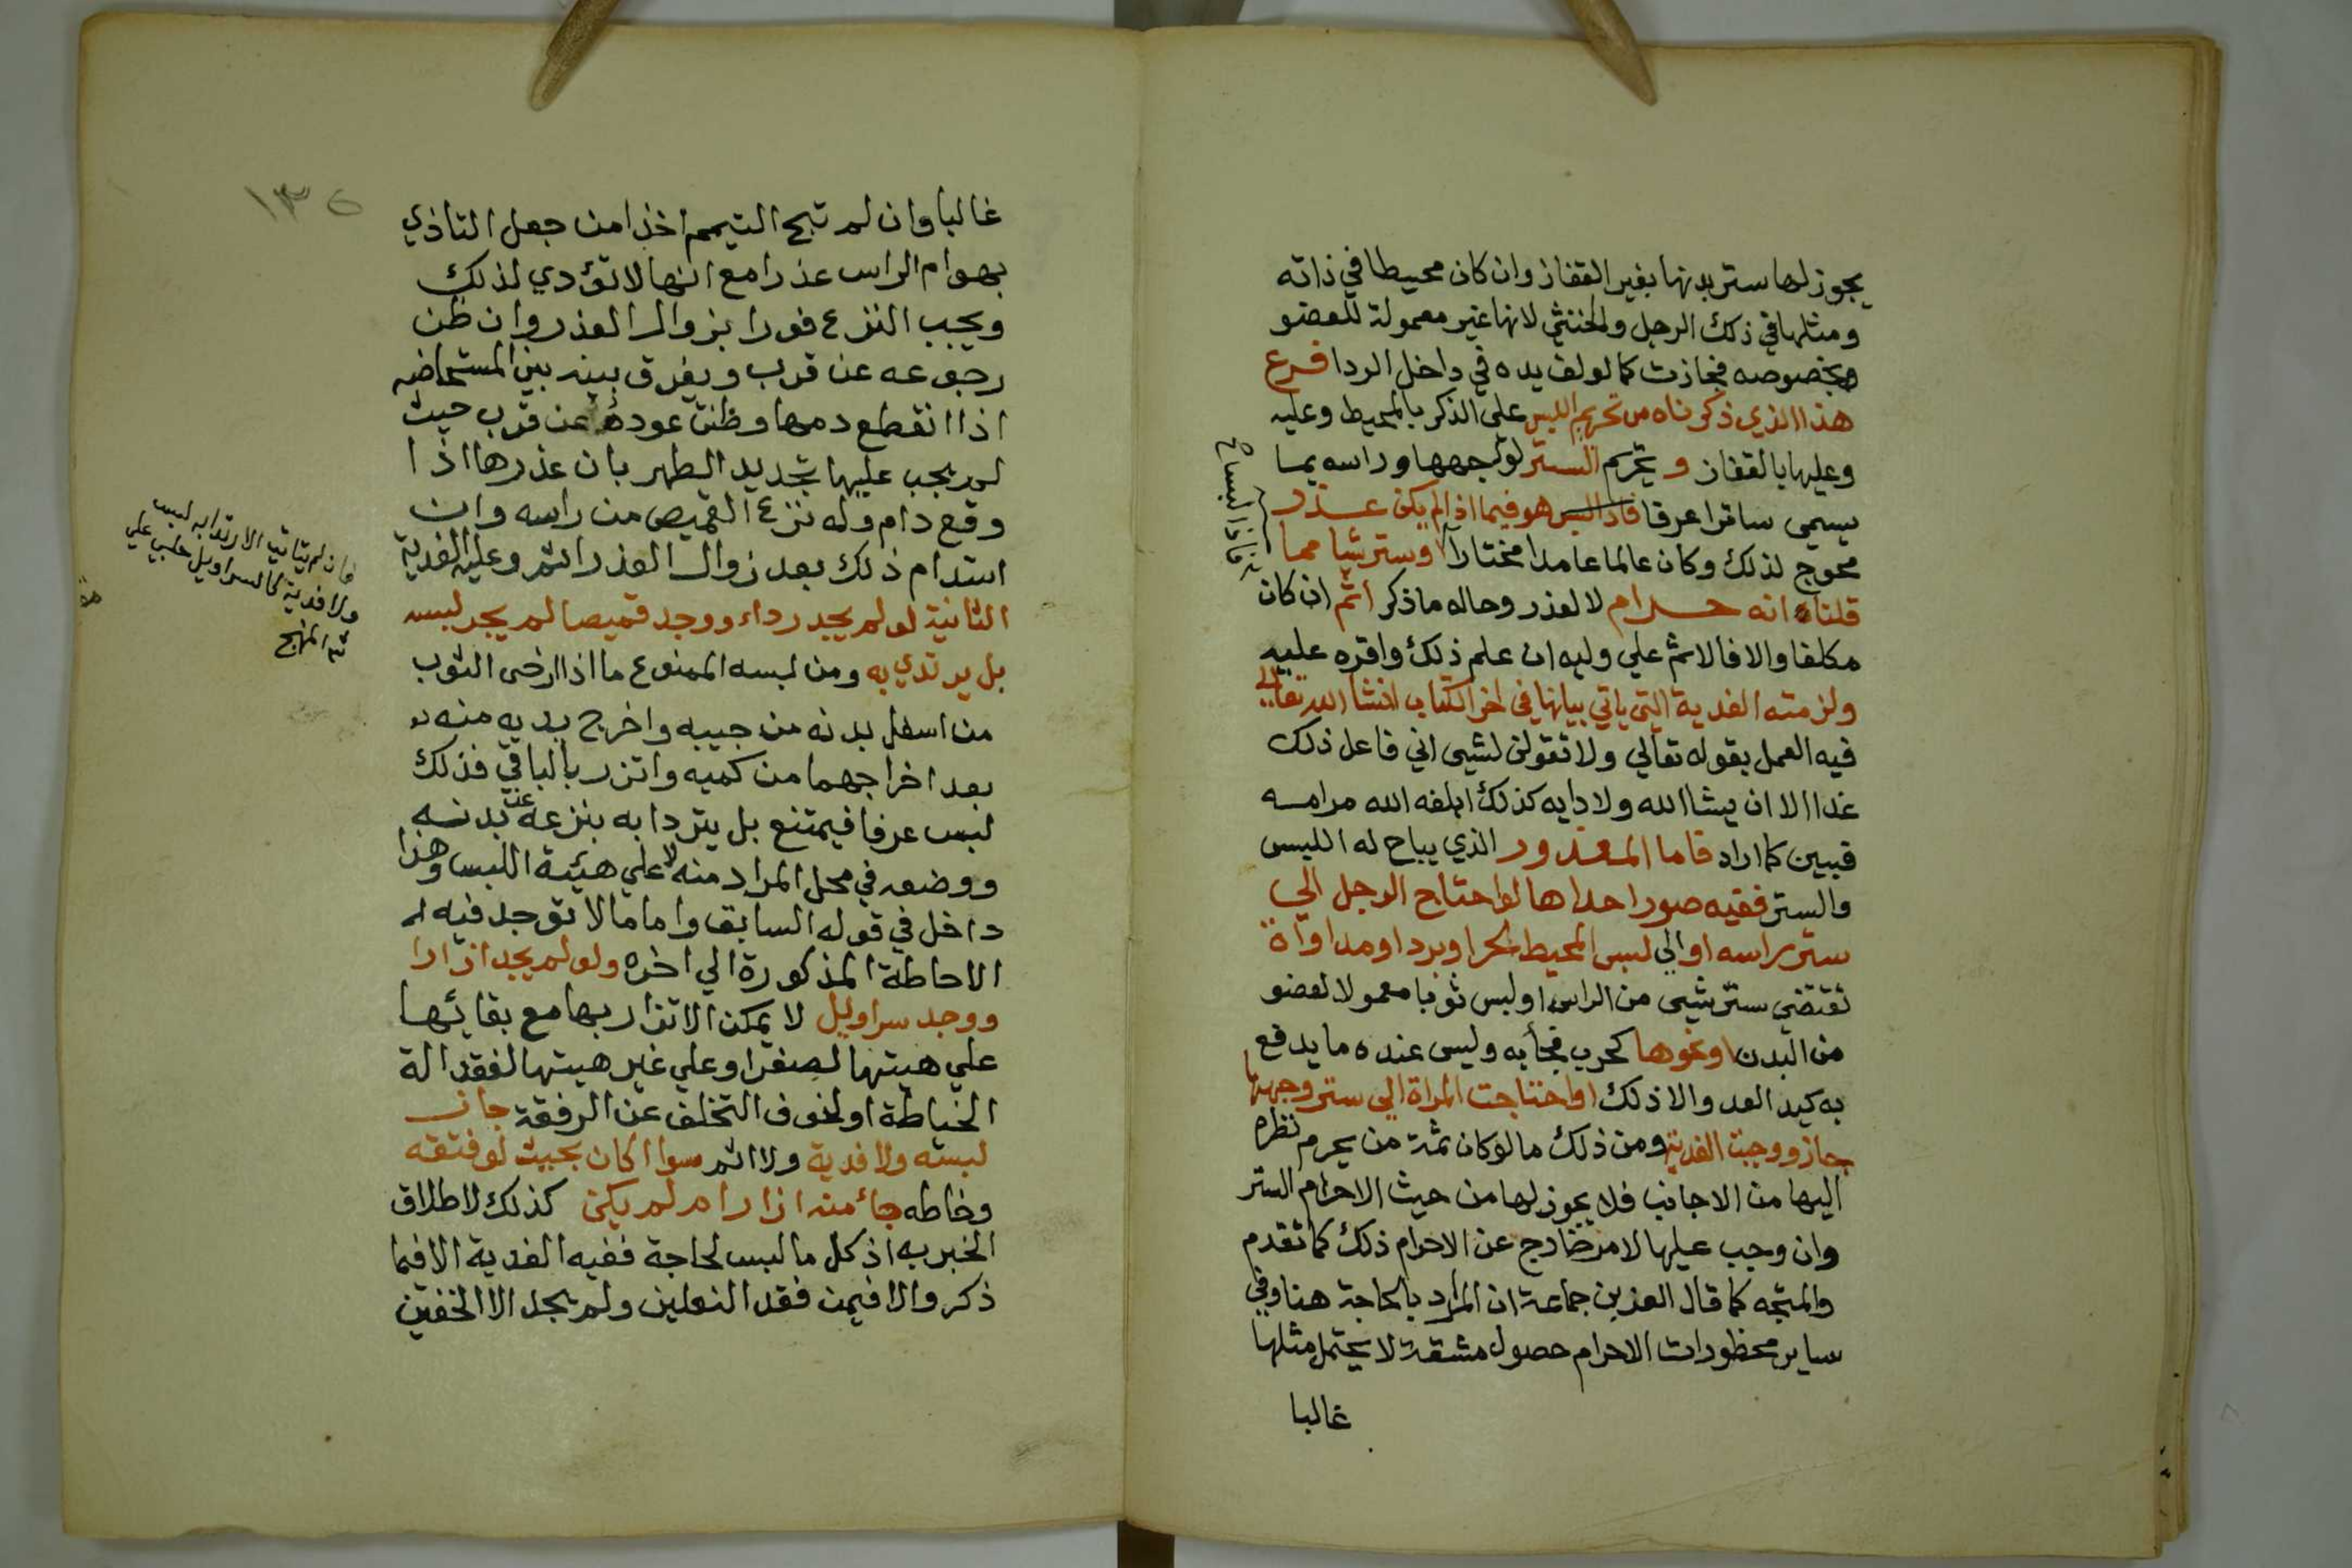 يجوز لها ستر بدنها بغير القفاز وان كان محيطا في ذاته
ومثلها في ذلك الرجل والخنثي لانها غير معمولة للعضو
بخصوصه فجازت كما لو لف يده في داخل الردا فرع
هذا الذي ذكرناه من تحريم اللبس علي الذكر بالمحيط وعليه
وعليها بالقفاز و تحريم الستر لوجهها وراسه بما
يسمي ساترا عرفا هو فيما اذا لم يكن عذر
محوج لذلك وكان عالما عامدا مختارا وستر شيا مما
قلنا انه حرام لا لعذر وحاله ما ذكر اثم ان كان
مكلفا والا فالاثم علي وليه ان علم ذلك واقره عليه
ولزمته الفدية التي ياتي بيانها في اخر الكتاب انشا الله تعالي
فيه العمل بقوله تعالي ولا تقولن لشيي اني فاعل ذلك
غدا الا ان يشا الله ولا دايه كذلك ابلغه الله مرامه
فبين كما اراد فاما المعذور الذي يباح له اللبس
والستر ففيه صور احداها لو احتاج الرجل الي
ستر راسه او الي لبس المحيط لحر او برد او مداواة
تقتضي ستر شيي من الراس او لبس ثوبا معمولا لعضو
من البدن او نحوها كحرب فجأبه وليس عنده ما يدفع
به كيد العدو الا ذلك او احتاجت المراة الي ستر وجهها
جاز ووجبت الفدية ومن ذلك ما لو كان ثمة من يحرم نظره
اليها من الاجانب فلا يجوز لها من حيث الاحرام الستر
وان وجب عليها لامر خارج عن الاحرام ذلك كما تقدم
والمتجه كما قال العز بن جماعة ان المراد بالحاجة هنا وفي
ساير محظورات الاحرام حصول مشقة لا يحتمل مثلها
غالبا
فاذا لبس
١٣٥
غالبا وان لم تبح التيمم اخذا من جعل التاذي
بهوام الراس عذرا مع انها لا تؤدي لذلك
ويجب النزع فورا بزوال العذر وان ظن
رجوعه عن قرب ويفرق بينه بين المستحاضه
اذا انقطع دمها وظنت عوده عن قرب حيث
لم يجب عليها تجديد الطهر بان عذرها اذا
وقع دام وله نزع القميص من راسه وان
استدام ذلك بعد زوال العذر اثم وعليه الفدية
الثانية لو لم يجد رداء ووجد قميصا لم يجز لبسه
بل يرتدي به ومن لبسه الممنوع ما اذا ارخى الثوب
من اسفل بدنه من جيبه واخرج يديه منه
بعد اخراجهما من كميه واتزر بالباقي فذلك
لبس عرفا فيمتنع بل يتردا به بنزعه عن بدنه
ووضعه في محل المراد منه لا علي هيئة اللبس وهذا
داخل في قوله السابق واما ما لا توجد فيه
الاحاطة المذكورة الي اخره ولو لم يجد ازارا
ووجد سراويل لا يمكن الاتزار بها مع بقائها
علي هيتها لصغر او علي غير هيتها لفقد الة
الخياطة او لخوف التخلف عن الرفقة جاز
لبسه ولا فدية ولا اثم سوا اكان بحيث لو فتقه
وخاطه جا منه ازار ام لم يكن كذلك لاطلاق
الخبر به اذ كل ما لبس لحاجة ففيه الفدية الا فيما
ذكر والا فيمن فقد النعلين ولم يجد الا الخفين
فان لم يتات الارتدا به لبسه
ولا فدية كالسراويل حلبي علي
المنهج